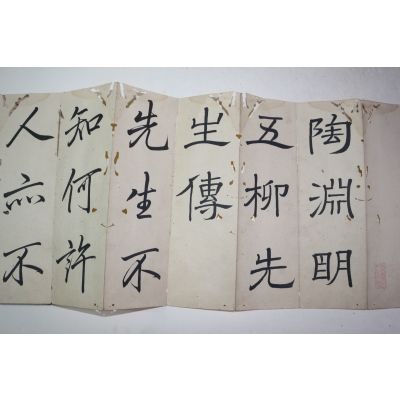 陶淵明
五柳先
生傳
先生不
知何許
人亦不